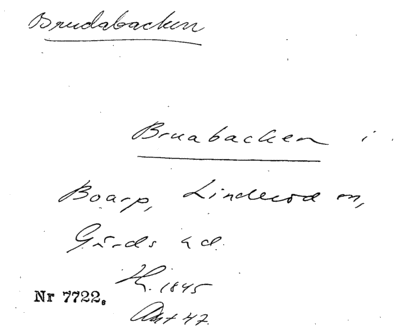 Brudabacken
Bruabacken i
Boarp, Linderöd sn,
Gärds hd.
Nr 7722.
1845
47